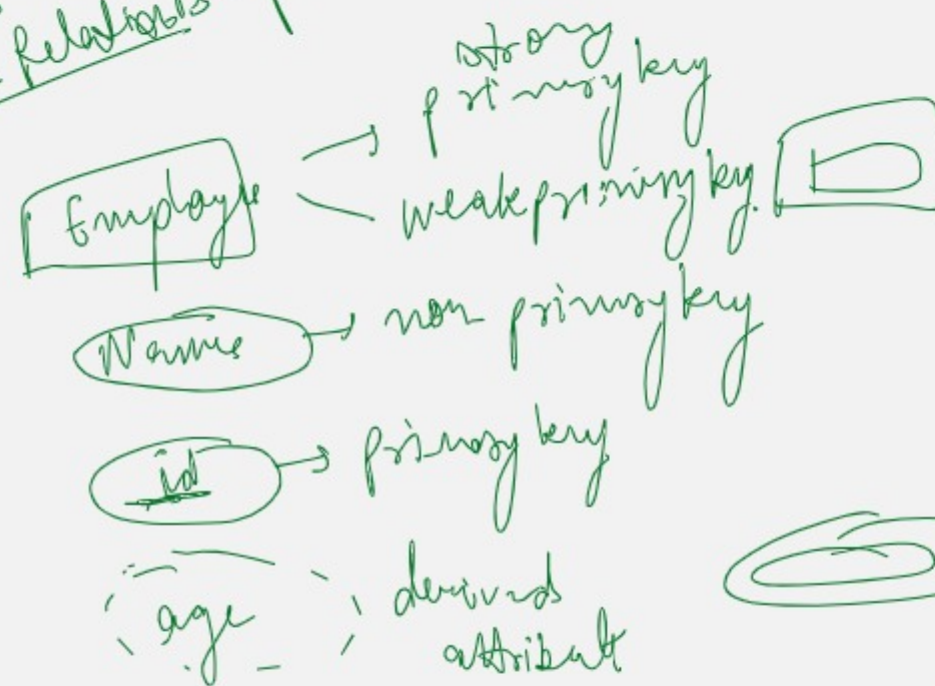 Relations
strong
primary key
Employee
weak primary key.
Name
non primary key
id
primary key
age
derived
attribut